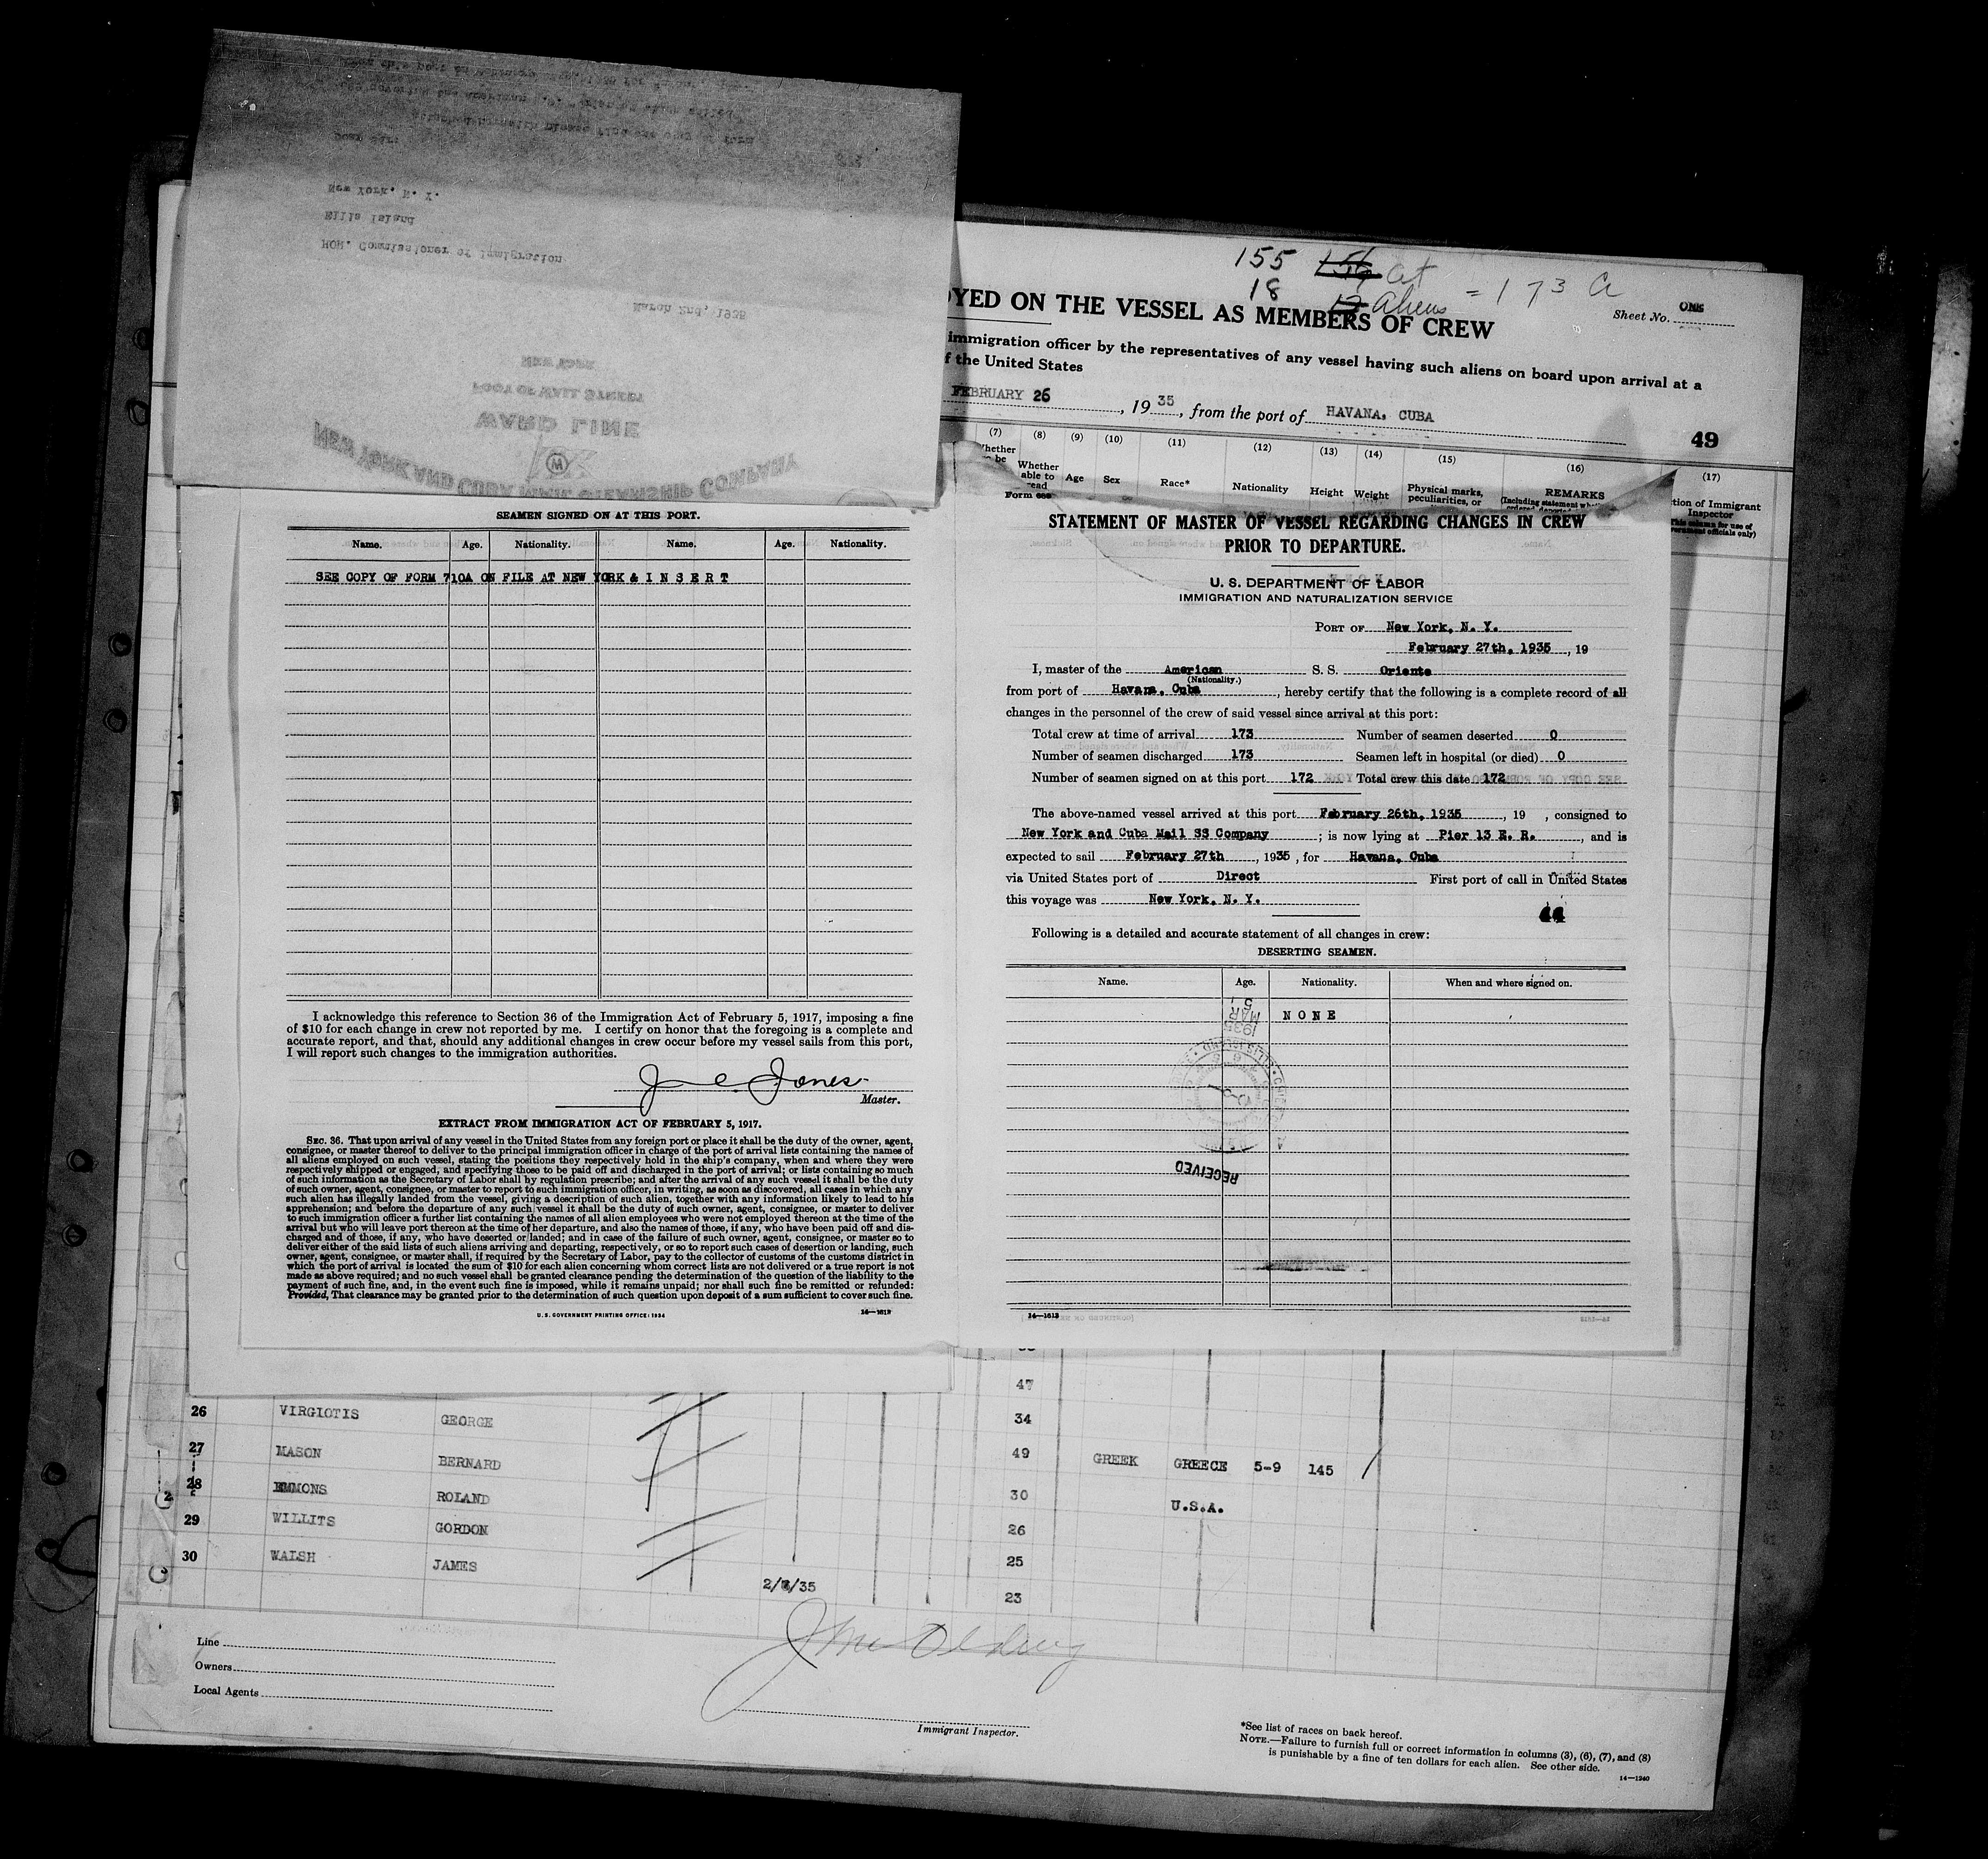 New York, N. Y.
Ellis Island
HON. Commissioner of Immigration
March 2nd, 1935
NEW YORK
FOOT OF WALL STREET
WARD LINE
NEW YORK AND CUBA MAIL STEAMSHIP COMPANY
155 at
18 Aliens = 173 a
Sheet No. ONE
OYED ON THE VESSEL AS MEMBERS OF CREW
immigration officer by the representatives of any vessel having such aliens on board upon arrival at a
f the United States
FEBRUARY 26, 1935, from the port of HAVANA, CUBA
49
(7) (8) (9) (10) (11) (12) (13) (14) (15) (16) (17)
Whether able to read Age Sex Race* Nationality Height Weight Physical marks, peculiarities, or REMARKS
tion of Immigrant
Inspector
SEAMEN SIGNED ON AT THIS PORT.
Name. Age. Nationality. Name. Age. Nationality.
SEE COPY OF FORM 710A ON FILE AT NEW YORK & I N S E R T
I acknowledge this reference to Section 36 of the Immigration Act of February 5, 1917, imposing a fine
of $10 for each change in crew not reported by me. I certify on honor that the foregoing is a complete and
accurate report, and that, should any additional changes in crew occur before my vessel sails from this port,
I will report such changes to the immigration authorities.
J C Jones
Master.
EXTRACT FROM IMMIGRATION ACT OF FEBRUARY 5, 1917.
SEC. 36. That upon arrival of any vessel in the United States from any foreign port or place it shall be the duty of the owner, agent,
consignee, or master thereof to deliver to the principal immigration officer in charge of the port of arrival lists containing the names of
all aliens employed on such vessel, stating the positions they respectively hold in the ship's company, when and where they were
respectively shipped or engaged, and specifying those to be paid off and discharged in the port of arrival; or lists containing so much
of such information as the Secretary of Labor shall by regulation prescribe; and after the arrival of any such vessel it shall be the duty
of such owner, agent, consignee, or master to report to such immigration officer, in writing, as soon as discovered, all cases in which any
such alien has illegally landed from the vessel, giving a description of such alien, together with any information likely to lead to his
apprehension; and before the departure of any such vessel it shall be the duty of such owner, agent, consignee, or master to deliver
to such immigration officer a further list containing the names of all alien employees who were not employed thereon at the time of the
arrival but who will leave port thereon at the time of her departure, and also the names of those, if any, who have been paid off and dis-
charged and of those, if any, who have deserted or landed; and in case of the failure of such owner, agent, consignee, or master so to
deliver either of the said lists of such aliens arriving and departing, respectively, or so to report such cases of desertion or landing, such
owner, agent, consignee, or master shall, if required by the Secretary of Labor, pay to the collector of customs of the customs district in
which the port of arrival is located the sum of $10 for each alien concerning whom correct lists are not delivered or a true report is not
made as above required; and no such vessel shall be granted clearance pending the determination of the question of the liability to the
payment of such fine, and, in the event such fine is imposed, while it remains unpaid; nor shall such fine be remitted or refunded:
Provided, That clearance may be granted prior to the determination of such question upon deposit of a sum sufficient to cover such fine.
U. S. GOVERNMENT PRINTING OFFICE: 1934 14—1613
STATEMENT OF MASTER OF VESSEL REGARDING CHANGES IN CREW
PRIOR TO DEPARTURE.
U. S. DEPARTMENT OF LABOR
IMMIGRATION AND NATURALIZATION SERVICE
PORT OF New York, N. Y.
February 27th, 1935, 19
I, master of the American S. S. Oriente
(Nationality.)
from port of Havana, Cuba, hereby certify that the following is a complete record of all
changes in the personnel of the crew of said vessel since arrival at this port:
Total crew at time of arrival 173 Number of seamen deserted 0
Number of seamen discharged 173 Seamen left in hospital (or died) 0
Number of seamen signed on at this port 172 Total crew this date 172
The above-named vessel arrived at this port February 26th, 1935, 19 , consigned to
New York and Cuba Mail SS Company; is now lying at Pier 13 E. R., and is
expected to sail February 27th, 1935, for Havana, Cuba
via United States port of Direct First port of call in United States
this voyage was New York, N. Y.
44
Following is a detailed and accurate statement of all changes in crew:
DESERTING SEAMEN.
Name. Age. Nationality. When and where signed on.
N O N E
1935 MAR 5
RECEIVED
14—1613
47
26 VIRGIOTIS GEORGE 34
27 MASON BERNARD 49 GREEK GREECE 5-9 145
28 EMMONS ROLAND 30 U.S.A.
29 WILLITS GORDON 26
30 WALSH JAMES 25
2/8/35 23
Line
Owners
Local Agents
Immigrant Inspector.
*See list of races on back hereof.
NOTE.—Failure to furnish full or correct information in columns (3), (6), (7), and (8)
is punishable by a fine of ten dollars for each alien. See other side.
14—1240